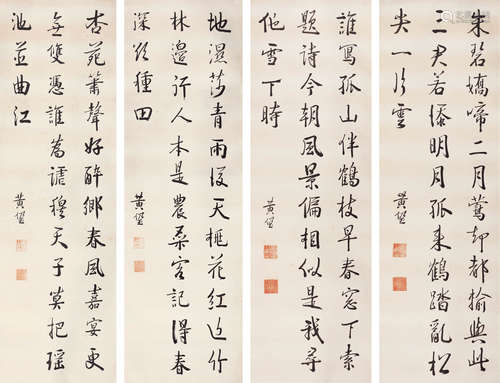 朱碧嬌啼二月鶯却都揄與此
二君若添明月孤來鶴踏亂松
尖一片雲
黄
誰寫孤山伴鶴枝早春窓下索
題詩今朝風景偏相似是我尋
他雪下時
黄
地濕莎青雨後天桃花紅近竹
林邊行人本是農桑客記得春
深欲種田
黄
杏苑簫聲好醉鄉春風嘉宴更
無雙憑誰為謔穆天子莫把瑤
池並曲江
黄